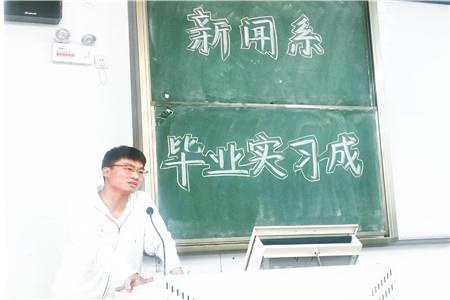 新闻系
毕业实习成